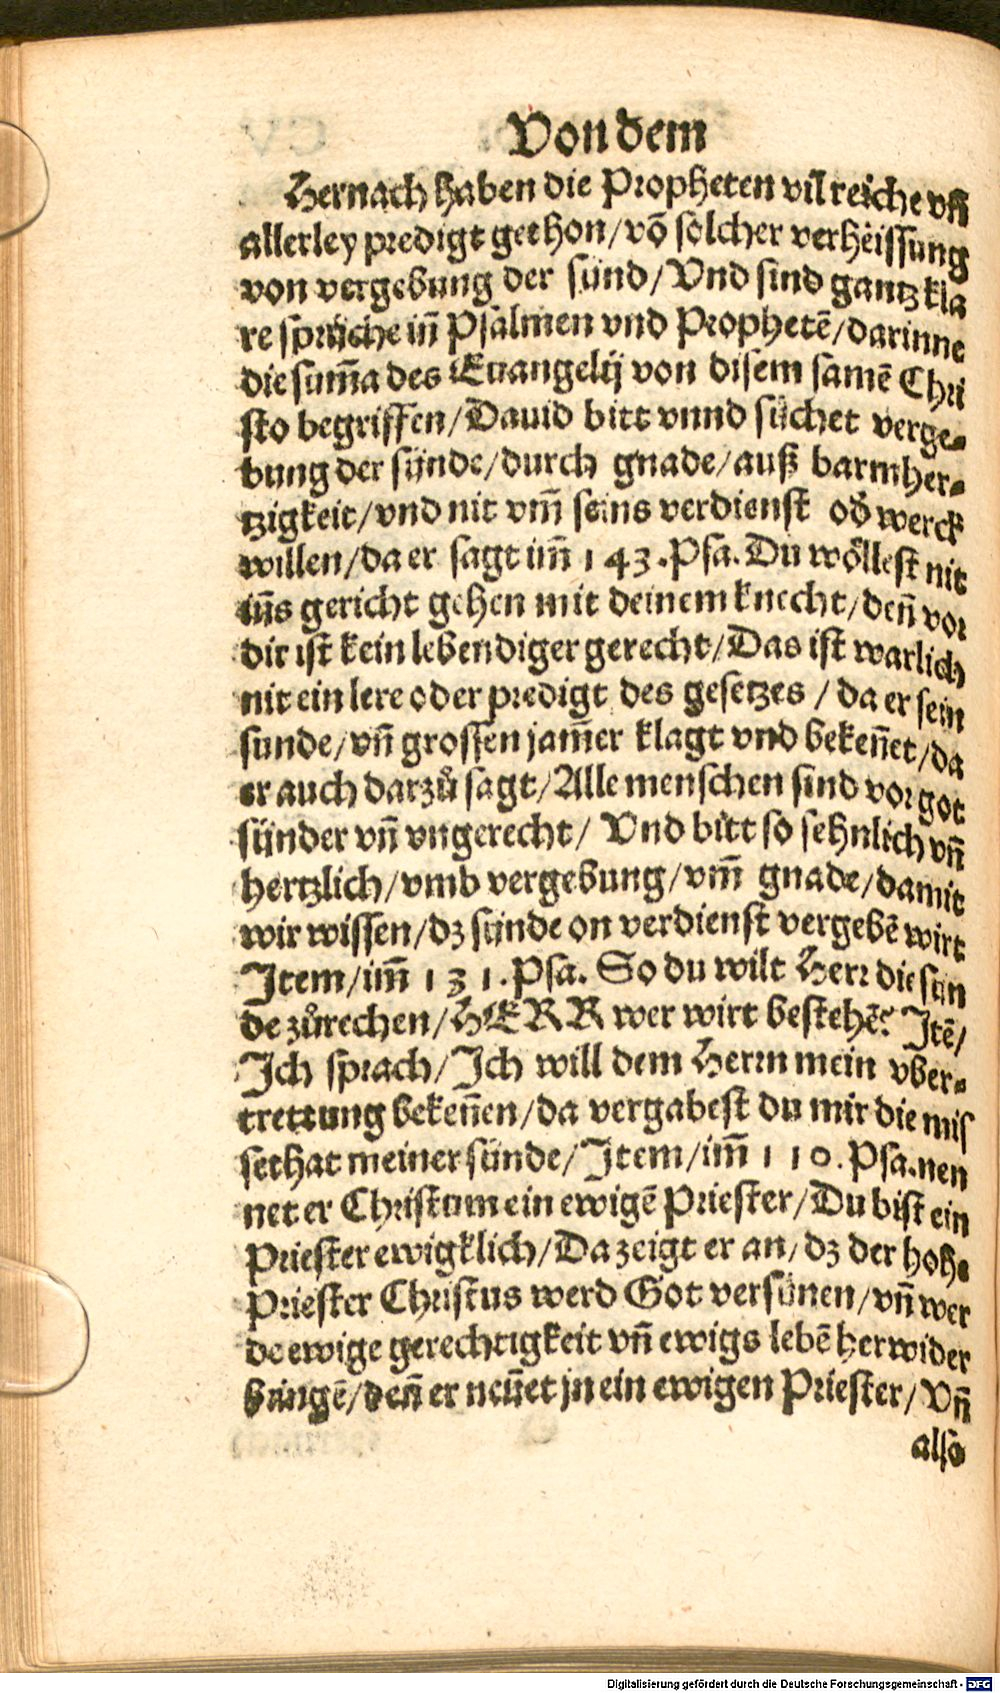 Von dem
Hernach haben die Propheten vil reiche vñ
allerley predigt gethon/võ solcher verheissung
von vergebung der sünd/Vnd sind gantz kla
re sprüche iñ Psalmen vnd Prophetē/darinne
die sum̃a des Euangelij von disem samē Chri
sto begriffen/Dauid bitt vnnd süchet verge⸗
bung der sünde/durch gnade/auß barmher⸗
tzigkeit/vnd nit vm̃ seins verdienst od' werck
willen/da er sagt im̃ 143.Psa.Du wöllest nit
iñs gericht gehen mit deinem knecht/deñ vor
dir ist kein lebendiger gerecht/Das ist warlich
nit ein lere oder predigt des gesetzes/da er sein
sunde/vñ grossen jam̃er klagt vnd bekeñet/da
er auch darzů sagt/Alle menschen sind vor got
sünder vñ vngerecht/ Vnd bitt so sehnlich vñ
hertzlich/vmb vergebung/vm̃ gnade/damit
wir wissen/dz sünde on verdienst vergebē wirt
Item/im̃ 131.Psa. So du wilt Herr die sün
de zůrechen/HERR wer wirt bestehē? Itē/
Ich sprach/Ich will dem Herrn mein vber⸗
trettung bekeñen/da vergabest du mir die mis
sethat meiner sünde/Item/im̃ 110.Psa.nen
net er Christum ein ewigē Priester/Du bist ein
Priester ewigklich/Da zeigt er an/dz der hohe
Priester Christus werd Got versünen/vñ wer
de ewige gerechtigkeit vñ ewigs lebē herwider
bringē/deñ er neñet jn ein ewigen Priester/Vñ
also
Digitalisierung gefördert durch die Deutsche Forschungsgemeinschaft - DFG